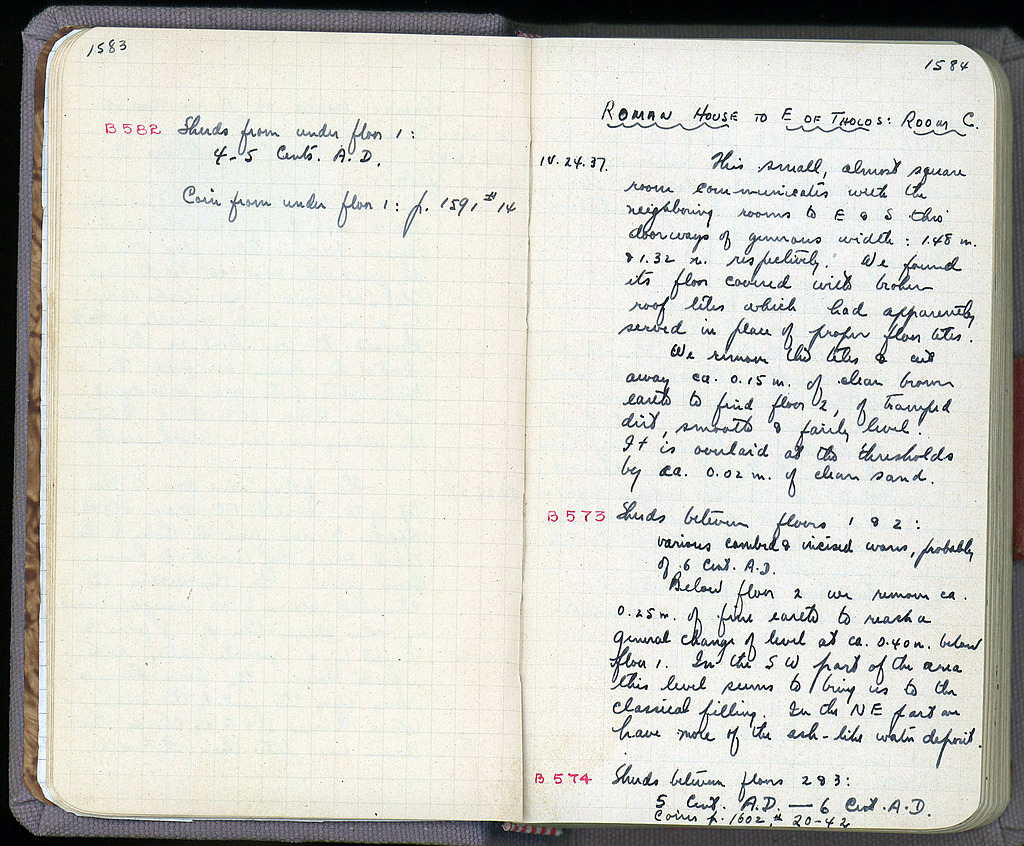 1583
B 582 Sherds from under floor 1:
4-5 Cents. A.D.
Coin from under floor 1: p. 1591 # 14
1584
ROMAN HOUSE TO E OF THOLOS: ROOM C.
IV. 24. 37. This small, almost square
room communicates with the
neighboring rooms to E & S thro'
doorways of generous width: 1.48 m.
& 1.32 m. respectively. We found
its floor covered with broken
roof tiles which had apparently
served in place of proper floor tiles.
We remove the tiles & cut
away ca. 0.15 m. of clean brown
earth to find floor 2, of tramped
dirt, smooth & fairly level.
It is overlaid at the thresholds
by ca. 0.02 m. of clean sand.
B 573 Sherds between floors 1 & 2:
various combed & incised wares, probably
of 6 Cent. A.D.
Below floor 2 we remove ca.
0.25 m. of fine earth to reach a
general change of level at ca. 0.40 m. below
floor 1. In the SW part of the area
this level seems to bring us to the
classical filling. In the NE part we
have more of the ash-like water deposit.
B 574 Sherds between floors 2 & 3:
5 Cent. A.D. — 6 Cent. A.D.
Coins p. 1602, # 20-42